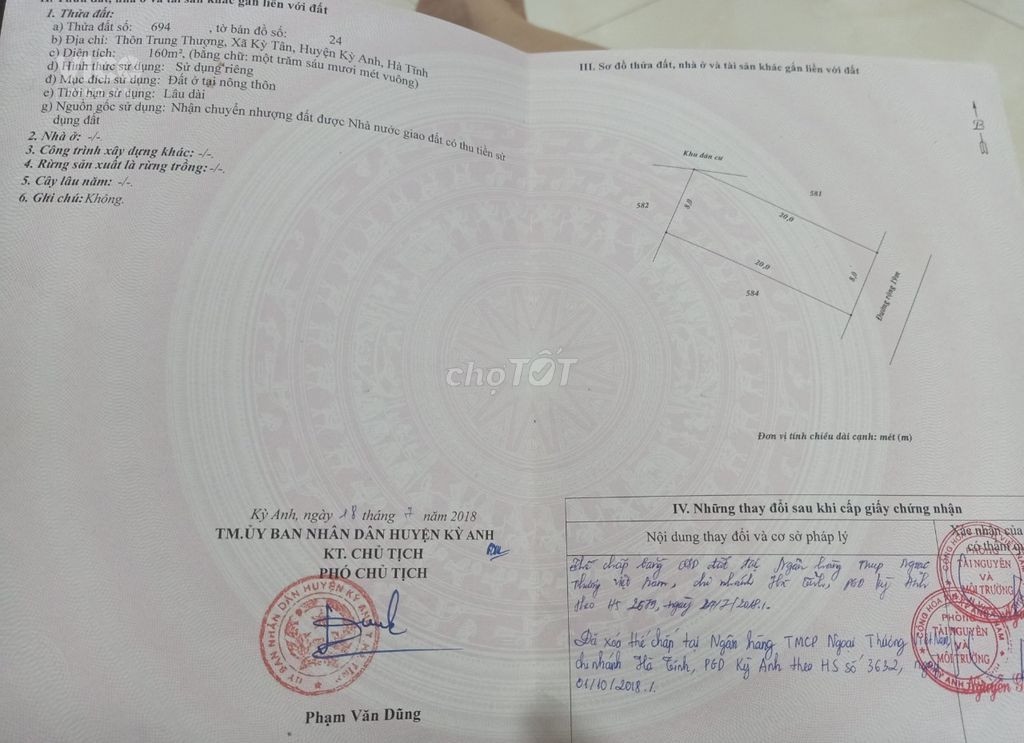 II. Thửa đất, nhà ở và tài sản khác gắn liền với đất
1. Thửa đất:
a) Thửa đất số: 694 , tờ bản đồ số: 24
b) Địa chỉ: Thôn Trung Thượng, Xã Kỳ Tân, Huyện Kỳ Anh, Hà Tĩnh
c) Diện tích: 160m², (bằng chữ: một trăm sáu mươi mét vuông)
d) Hình thức sử dụng: Sử dụng riêng
đ) Mục đích sử dụng: Đất ở tại nông thôn
e) Thời hạn sử dụng: Lâu dài
g) Nguồn gốc sử dụng: Nhận chuyển nhượng đất được Nhà nước giao đất có thu tiền sử
dụng đất
2. Nhà ở: -/-
3. Công trình xây dựng khác: -/-.
4. Rừng sản xuất là rừng trồng: -/-.
5. Cây lâu năm: -/-.
6. Ghi chú: Không.
Kỳ Anh, ngày 18 tháng 7 năm 2018
TM.ỦY BAN NHÂN DÂN HUYỆN KỲ ANH
KT. CHỦ TỊCH
PHÓ CHỦ TỊCH
Phạm Văn Dũng
III. Sơ đồ thửa đất, nhà ở và tài sản khác gắn liền với đất
B
Khu dân cư
581
582
8,0
20,0
20,0
8,0
584
Đường rộng 18m
Đơn vị tính chiều dài cạnh: mét (m)
chợTỐT
IV. Những thay đổi sau khi cấp giấy chứng nhận
Nội dung thay đổi và cơ sở pháp lý
Xác nhận của
có thẩm qu
Thế chấp bằng QSD đất tại Ngân hàng TMCP Ngoại
Thương Việt Nam, chi nhánh Hà Tĩnh, PGD Kỳ Anh
theo HS 2579, ngày /7/2018.
Đã xoá thế chấp tại Ngân hàng TMCP Ngoại Thương Việt Nam
chi nhánh Hà Tĩnh, PGD Kỳ Anh theo HS số 3632, ngày
01/10/2018.
PHÒNG
TÀI NGUYÊN
VÀ
MÔI TRƯỜNG
PHÒNG
TÀI NGUYÊN
VÀ
MÔI TRƯỜNG
Nguyễn